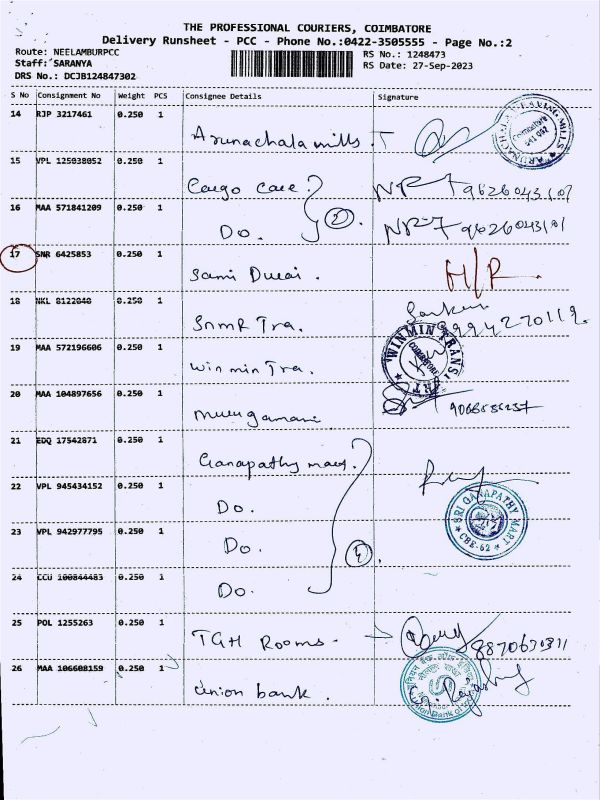 THE PROFESSIONAL COURIERS, COIMBATORE
Delivery Runsheet - PCC - Phone No.:0422-3505555 - Page No.:2
Route: NEELAMBURPCC
RS No.: 1248473
Staff: SARANYA
RS Date: 27-Sep-2023
DRS No.: DCJB124847302
S No Consignment No Weight PCS Consignee Details Signature
14 RJP 3217461 0.250 1
Arunachala mills.
ARUNACHALA MILLS
15 VPL 125038052 0.250 1
Cargo Care
9626043101
16 MAA 571841209 0.250 1
Do. 2
9626043101
17 SNR 6425853 0.250 1
Sami Durai. H/R
18 NKL 8122040 0.250 1
SnmR Tra. 9994270119.
19 MAA 572196606 0.250 1
Win min Tra.
WINMIN TRANSPORT
20 MAA 104897656 0.250 1
Murugamani
21 EDQ 17542871 0.250 1
Ganapathy mart.
22 VPL 945434152 0.250 1
Do.
SRI GANAPATHY MART
CBE-62
23 VPL 942977795 0.250 1
Do. 4
24 CCU 100844483 0.250 1
Do.
25 POL 1255263 0.250 1
TGH Rooms.
26 MAA 106608159 0.250 1
Union bank.
Union Bank of